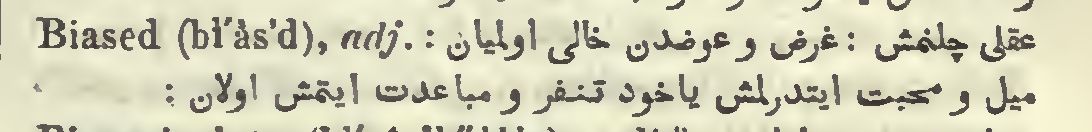 Biased (bī′ăs'd), adj. : عقلی چلنمش : غرض و عوضدن خالی اولمیان
میل و محبت ایتدرلمش یاخود تنفر و مباعدت ایتمش اولان :